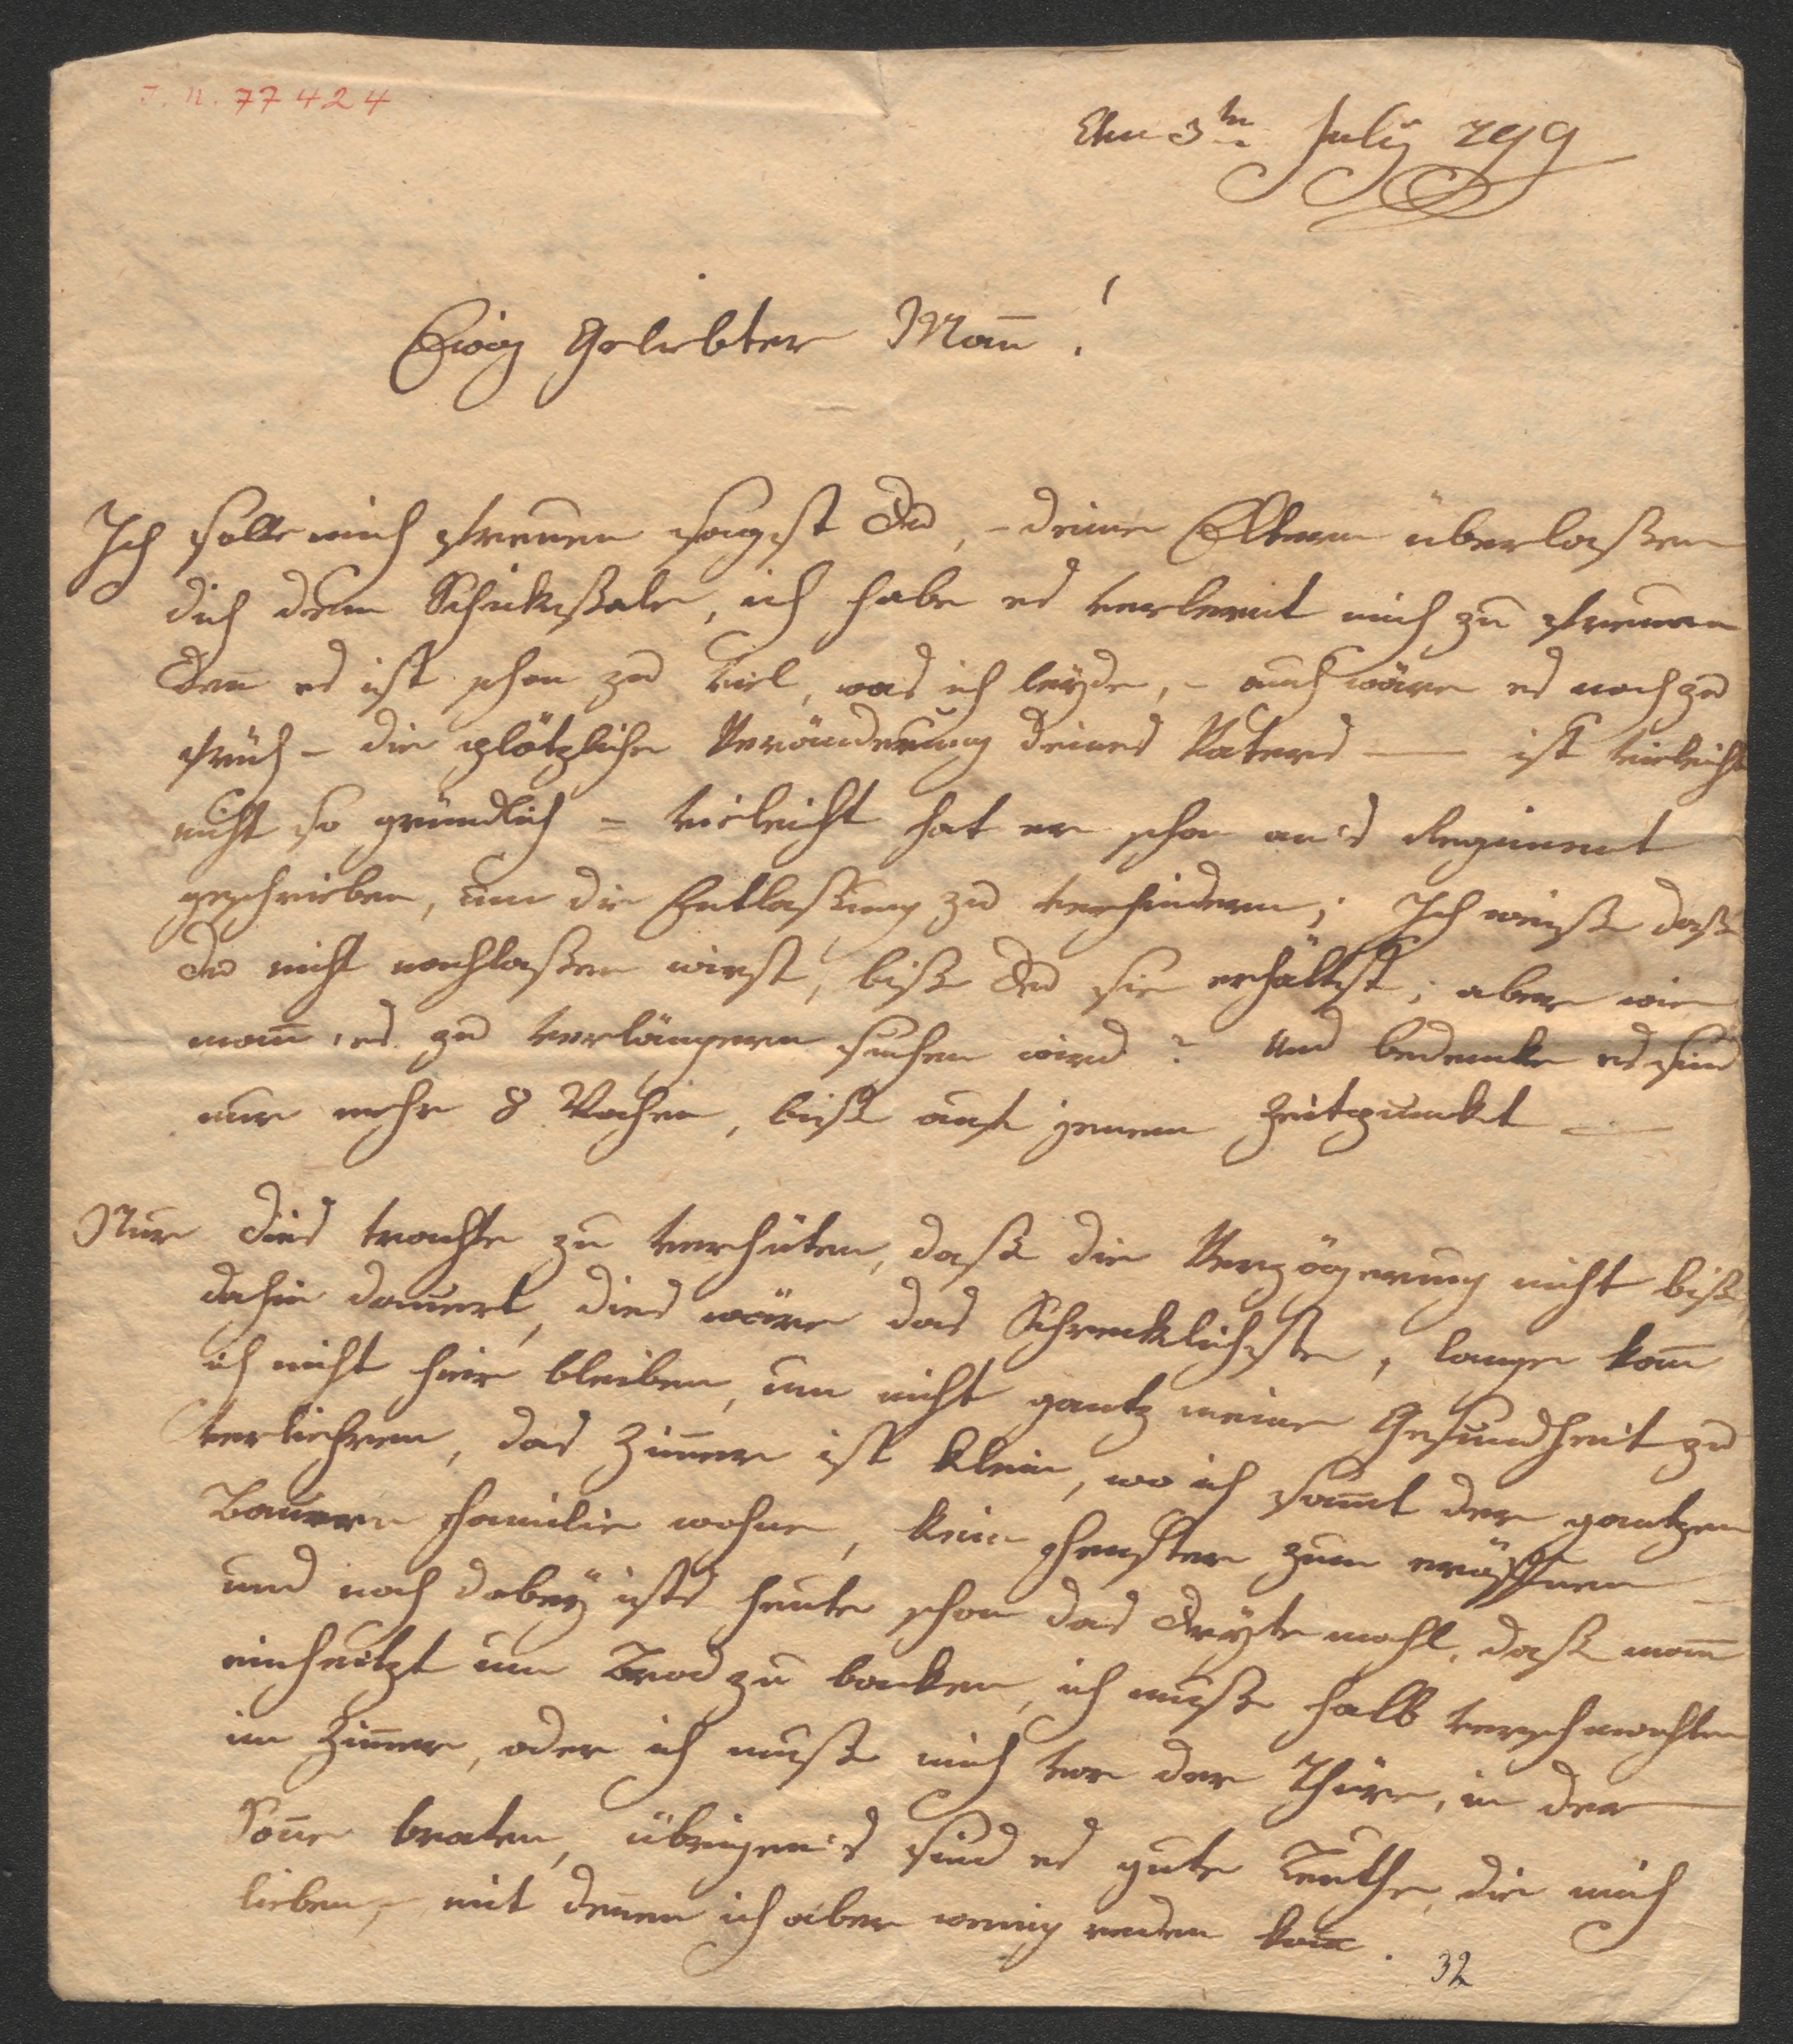 J. N. 77424
Den 3ten July 799
Ewig Geliebter Man̅!
Ich solle mich freuen sagst Du, - deine Eltern überlaßen
dich dem Schiksale, ich habe es verlernt mich zu freuen
Den̅ es ist schon zu viel, was ich leyde, - auch wäre es noch zu
früh - die plötzliche Veränderung deines Vaters — ist vieleicht
nicht so gründlich = vieleicht hat er schon an's Regiment
geschrieben, um die Entlaßung zu verhindern; Ich weiß daß
Du nicht nachlaßen wirst, biß Du sie erhältst; aber wie
man̅ es zu verlängern suchen wird? Und bedenke es sind
nur mehr 8 Wochen, biß auf jenem Zeitpunckt —
Nur dies trachte zu verhüten, daß die Verzögerung nicht biß
dahin dauert, dies wäre das Schrecklichste, lange kan̅
ich nicht hier bleiben, um nicht gantz meine Gesundheit zu
verliehren, das Zim̅er ist klein, wo ich sam̅t der gantzen
Bauern Familie wohne, kein Fenster zum eröffnen
und noch dabey ists heute schon das dryte mahl, daß man̅
einheitzt um Brod zu backen, ich muß halb verschmachten
im Zim̅er, oder ich muß mich vor der Thüre, in der
Son̅e braten, übrigen's sind es gute Leuthe, die mich
lieben, - mit denen ich aber wenig reden kan̅.
32